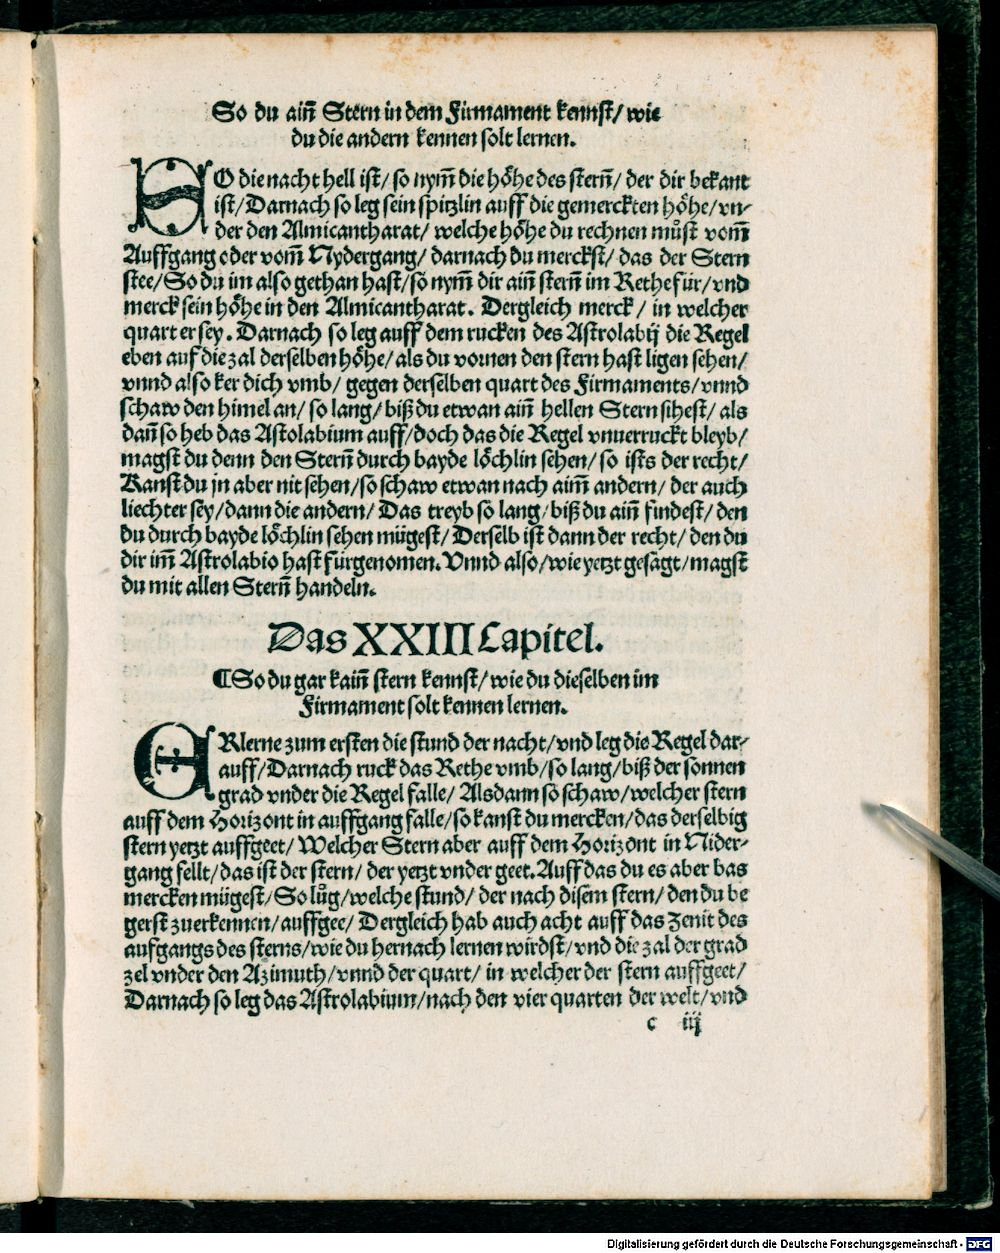 So du ainẽ Stern in dem Firmament kennst/ wie
du die andern kennen solt lernen.
SO die nacht hell ist/ so nym̃ die hoͤhe des stern̄/ der dir bekant
ist/ Darnach so leg sein spitzlin auff die gemerckten hoͤhe/ vn-
der den Almicantharat/ welche hoͤhe du rechnen muͦst vom̃
Auffgang oder vom̃ Nydergang/ darnach du merckst/ das der Stern
stee/ So du im also gethan hast/ so nym̃ dir ain̄ stern̄ im Rethe für/ vnd
merck sein hoͤhe in den Almicantharat. Dergleich merck/ in welcher
quart er sey. Darnach so leg auff dem rucken des Astrolabij die Regel
eben auf die zal derselben hoͤhe/ als du vornen den stern hast ligen sehen/
vnnd also ker dich vmb/ gegen derselben quart des Firmaments/ vnnd
schaw den himel an/ so lang/ biß du etwan ain̄ hellen Stern sihest/ als
dan̄ so heb das Astolabium auff/ doch das die Regel vnuerruckt bleyb/
magst du denn den Stern̄ durch bayde loͤchlin sehen/ so ists der recht/
Kanst du jn aber nit sehen/ so schaw etwan nach aim̄ andern/ der auch
liechter sey/ dann die andern/ Das treyb so lang/ biß du ain̄ findest/ den
du durch bayde loͤchlin sehen mügest/ Derselb ist dann der recht/ den du
dir im̄ Astrolabio hast fürgenomen. Vnnd also/ wie yetzt gesagt/ magst
du mit allen Stern̄ handeln.
Das XXIII Capitel.
¶ So du gar kain̄ stern kennst/ wie du dieselben im
Firmament solt kennen lernen.
ERlerne zum ersten die stund der nacht/ vnd leg die Regel dar-
auff/ Darnach ruck das Rethe vmb/ so lang/ biß der sonnen
grad vnder die Regel falle/ Alsdann so schaw/ welcher stern
auff dem Horizont in auffgang falle/ so kanst du mercken/ das derselbig
stern yetzt auffgeet/ Welcher Stern aber auff dem Horizont in Nider-
gang fellt/ das ist der stern/ der yetzt vnder geet. Auff das du es aber bas
mercken mügest/ So luͦg/ welche stund/ der nach disem stern/ den du be
gerst zuerkennen/ auffgee/ Dergleich hab auch acht auff das Zenit des
aufgangs des sterns/ wie du hernach lernen wirdst/ vnd die zal der grad
zel vnder den Azimuth/ vnnd der quart/ in welcher der stern auffgeet/
Darnach so leg das Astrolabium/ nach den vier quarten der welt/ vnd
c iij
Digitalisierung gefördert durch die Deutsche Forschungsgemeinschaft - DFG